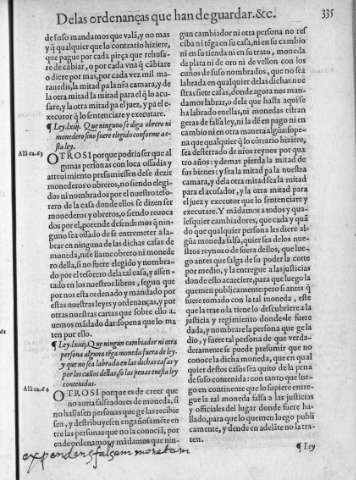 De las ordenanças que han de guardar. &c. 335
de suso mandamos que vala, y no mas
y q̃ qualquier que lo contrario hiziere,
que pague por cada pieça que rehusa-
re de cãbiar, o por cada vna q̃ cãbiare
o diere por mas, por cada vez mil ma-
rauedis, la mitad pa la nr̃a camara, y de
la otra mitad la mitad para el q̃ lo acu-
sare, y la otra mitad pa el juez, y pa el e-
xecutor q̃ lo sentenciare y executare.
¶ Ley. lxiij. Que ninguno se diga obrero ni
monedero sino fuere elegido conforme a e-
sta ley.
Allí ca. 63
OTROSI por que podria ser que al
gunas personas con loca osadia y
atreuimiento presumiessen de se dezir
monederos o obreros, no siendo elegi-
dos ni nombrados por el nuestro teso-
rero de la casa donde ellos se dizen ser
monederos y obreros, o siendo reuoca
dos por el, porende defendemos q̃ nin-
guno sea osado de se entremeter a la-
brar en ninguna de las dichas casas de
moneda, ni se llame obrero ni monede
ro della, si no fuere elegido y nombra-
do por el tesorero de la tal casa, y assen-
tado en los nuestros libros, segun que
por nos esta ordenado y mandado por
estas nuestras leyes y ordenanças, y por
otras nuestras cartas que sobre ello a-
uemos mãdado dar so pena que lo ma
ten por ello.
¶ Ley. lxiiij. Que ningun cambiador ni otra
persona alguna tẽga moneda fuera de ley,
y que no sea labrada en las dichas casas y
por los cuños dellas so las penas en esta ley
contenidas.
Allí ca. 64
OTROSI porque es de creer que
no auria falseadores de moneda, si
no hallassen personas que las recibie
sen, y distribuyessen engañosamẽte en
tre las personas que no la conoscã, por
ende ordenamos y mãdamos que nin-
expenders falsam monetam
gun cambiador ni otra persona no res
ciba ni tẽga en su casa, ni en su cambio
ni en su tienda ni en su trato, moneda
de plata ni de oro ni de vellon con los
cuños de suso nombrados, que no sea
labrada en qualquier delas dichas nue
stras siete casas, donde agora nos man-
damos labrar, o dela que hasta aqui se
ha labrado en ellas, ni monedas estran
geras de falsa ley, ni la dẽ en pago ni en
cambio ni en otra manera alguna so pe-
na que qualquier q̃ lo contrario hiziere,
sea desterrado de n̄ros reynos por qua
tro años: y demas pierda la mitad de
sus bienes: y sea la mitad pa la nuestra
camara, y dela otra mitad sea la mitad
para el acusador, y la otra mitad para
el juez y executor que lo sentenciare y
executare. Y mãdamos a todos y qua-
lesquier cambiadores, que cada y quã
do que qualquier persona les diere al-
gũa moneda falsa, quier sea delos nue-
stros reynos o de fuera dellos, que lue-
go antes que salga de su poder la corte
por medio, y la entregue a las justicias
donde ello acaesciere, para que luego la
quemen publicamente: pero si antes q̃
fuere tomado con la tal moneda, este
que la trae o la tiene lo descubriere a la
justicia y regimiento donde le fuere
dada, y nombrare la persona que ge la
dio, y fuere tal persona de que verda-
deramente se puede presumir que no
conosce la dicha moneda, que en qual
quier destos casos sea quito dela pena
de suso contenida: con tanto que lue-
go en continente que lo supiere entre-
gue la tal moneda falsa a las justicias
y officiales del lugar donde fuere ha-
llado, para que lo quemen luego publi
camente, y dende en adelãte no la tra-
ten.
¶ Ley